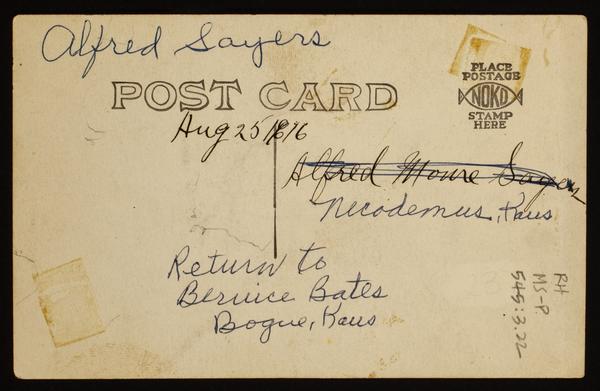 Alfred Sayers
PLACE
POSTAGE
NOKO
STAMP
HERE
POST CARD
Aug 25 1616
Alfred Moure Sayers
Necodemus, Kans
Return to
Bernice Bates
Bogue, Kans
RH
MS-P
545:3.22